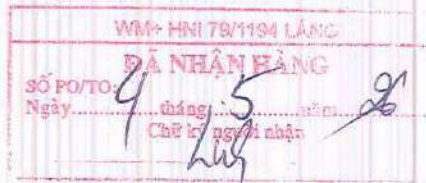 WM+ HNI 79/1194 LÁNG
ĐÃ NHẬN HÀNG
SỐ PO/TO:
Ngày 4 tháng 5 năm 26
Chữ ký người nhận